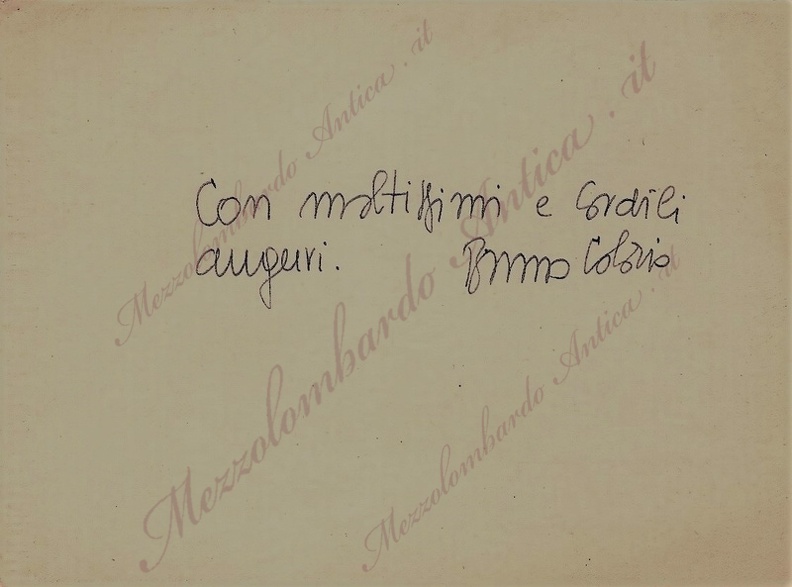 Con moltissimi e cordili
auguri. Bruno Colorio
Mezzolombardo Antica.it
Mezzolombardo Antica.it
Mezzolombardo Antica.it